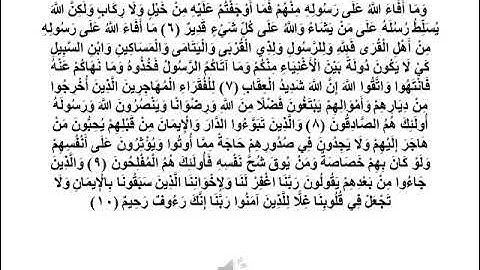 وَمَا أَفَاءَ اللَّهُ عَلَى رَسُولِهِ مِنْهُمْ فَمَا أَوْجَفْتُمْ عَلَيْهِ مِنْ خَيْلٍ وَلَا رِكَابٍ وَلَكِنَّ اللَّهَ
يُسَلِّطُ رُسُلَهُ عَلَى مَنْ يَشَاءُ وَاللَّهُ عَلَى كُلِّ شَيْءٍ قَدِيرٌ (٦) مَا أَفَاءَ اللَّهُ عَلَى رَسُولِهِ
مِنْ أَهْلِ الْقُرَى فَلِلَّهِ وَلِلرَّسُولِ وَلِذِي الْقُرْبَى وَالْيَتَامَى وَالْمَسَاكِينِ وَابْنِ السَّبِيلِ
كَيْ لَا يَكُونَ دُولَةً بَيْنَ الْأَغْنِيَاءِ مِنْكُمْ وَمَا آتَاكُمُ الرَّسُولُ فَخُذُوهُ وَمَا نَهَاكُمْ عَنْهُ
فَانْتَهُوا وَاتَّقُوا اللَّهَ إِنَّ اللَّهَ شَدِيدُ الْعِقَابِ (٧) لِلْفُقَرَاءِ الْمُهَاجِرِينَ الَّذِينَ أُخْرِجُوا
مِنْ دِيَارِهِمْ وَأَمْوَالِهِمْ يَبْتَغُونَ فَضْلًا مِنَ اللَّهِ وَرِضْوَانًا وَيَنْصُرُونَ اللَّهَ وَرَسُولَهُ
أُولَئِكَ هُمُ الصَّادِقُونَ (٨) وَالَّذِينَ تَبَوَّءُوا الدَّارَ وَالْإِيمَانَ مِنْ قَبْلِهِمْ يُحِبُّونَ مَنْ
هَاجَرَ إِلَيْهِمْ وَلَا يَجِدُونَ فِي صُدُورِهِمْ حَاجَةً مِمَّا أُوتُوا وَيُؤْثِرُونَ عَلَى أَنْفُسِهِمْ
وَلَوْ كَانَ بِهِمْ خَصَاصَةٌ وَمَنْ يُوقَ شُحَّ نَفْسِهِ فَأُولَئِكَ هُمُ الْمُفْلِحُونَ (٩) وَالَّذِينَ
جَاءُوا مِنْ بَعْدِهِمْ يَقُولُونَ رَبَّنَا اغْفِرْ لَنَا وَلِإِخْوَانِنَا الَّذِينَ سَبَقُونَا بِالْإِيمَانِ وَلَا
تَجْعَلْ فِي قُلُوبِنَا غِلًّا لِلَّذِينَ آمَنُوا رَبَّنَا إِنَّكَ رَءُوفٌ رَحِيمٌ (١٠)